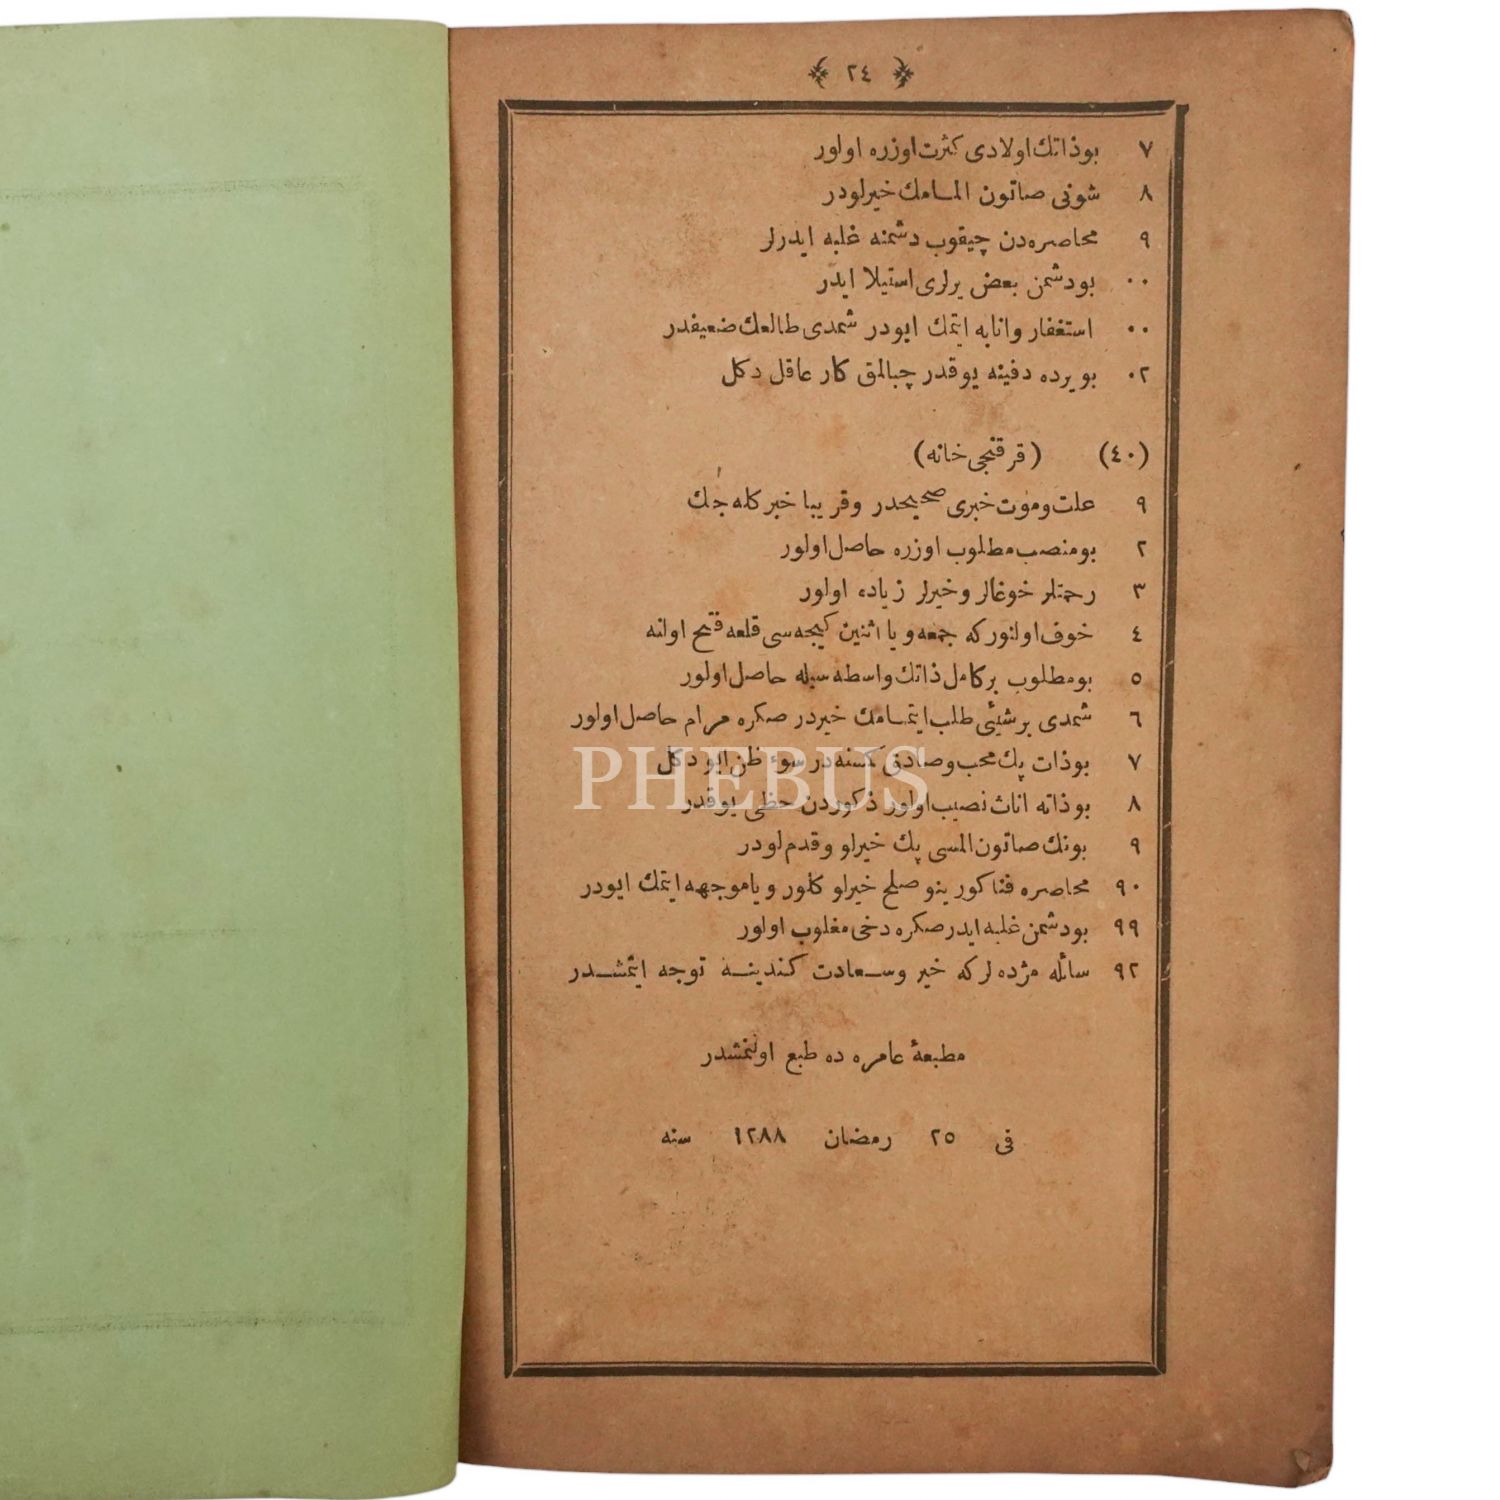 ٢٤
٧ بو ذاتك اولادی كثرت اوزره اولور
٨ شونی صاتون المامك خیرلودر
٩ محاصره‌دن چیقوب دشمنه غلبه ایدرلر
٠٠ بودشمن بعض یرلری استیلا ایدر
٠٠ استغفار وانابه ایتمك ایودر شمدی طالعك ضعیفدر
٠٢ بویرده دفینه یوقدر چبالمق كار عاقل دكل
(٤٠) (قرقنجی خانه)
٩ علت وموت خبری صحیحدر وقریبا خبر كله جك
٢ بومنصب مطلوب اوزره حاصل اولور
٣ رحمتلر خوغالر وخیرلر زیاده اولور
٤ خوف اولنور كه جمعه ویا اثنین كیجه سی قلعه فتح اولنه
٥ بومطلوب بر كامل ذاتك واسطه سیله حاصل اولور
٦ شمدی بر شیئی طلب ایتمامك خیردر صكره مرام حاصل اولور
٧ بوذات پك محب وصادق كسنه در سوء ظن ایو دكل
PHEBUS
٨ بوذاته اناث نصیب اولور ذكوردن حظی یوقدر
٩ بونك صاتون المسی پك خیرلو وقدم لودر
٩٠ محاصره فنا كورینو صلح خیرلو كلور ویا موجهه ایتمك ایودر
٩٩ بودشمن غلبه ایدر صكره دخی مغلوب اولور
٩٢ سائله مژده لر كه خیر وسعادت كندینه توجه ایتمشدر
مطبعهٔ عامره ده طبع اولنمشدر
فی ٢٥ رمضان ١٢٨٨ سنه